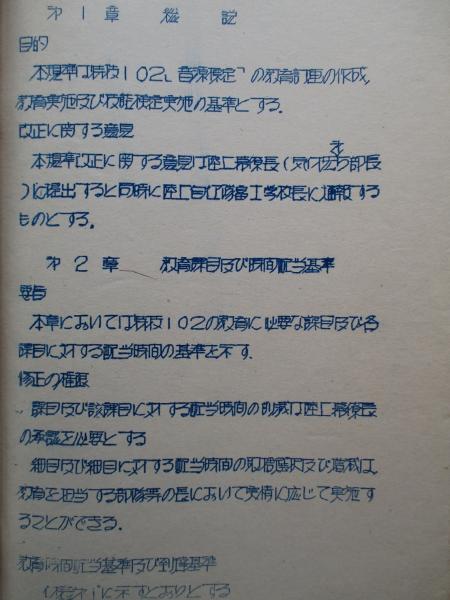 第1章 総説
目的
本規準は特技102「音源標定」の教育計画の作成,
教育実施及び技能検定実施の基準とする.
改正に関する意見
本規準改正に関する意見は陸上幕僚長(部長
)に提出すると同時に陸上自衛隊富士学校長に通報する
ものとする.
第2章 教育課目及び時間配当基準
要旨
本章においては特技102の教育に必要な課目及び各
課目に対する配当時間の基準を示す.
修正の権限
課目及び該課目に対する配当時間の削減は陸上幕僚長
の承認を必要とする
細目及び細目に対する配当時間の及び増減は,
教育を担当する部隊等の長において実情に応じて実施す
ることができる.
教育時間配当基準及び到達基準
に示すとおりとする